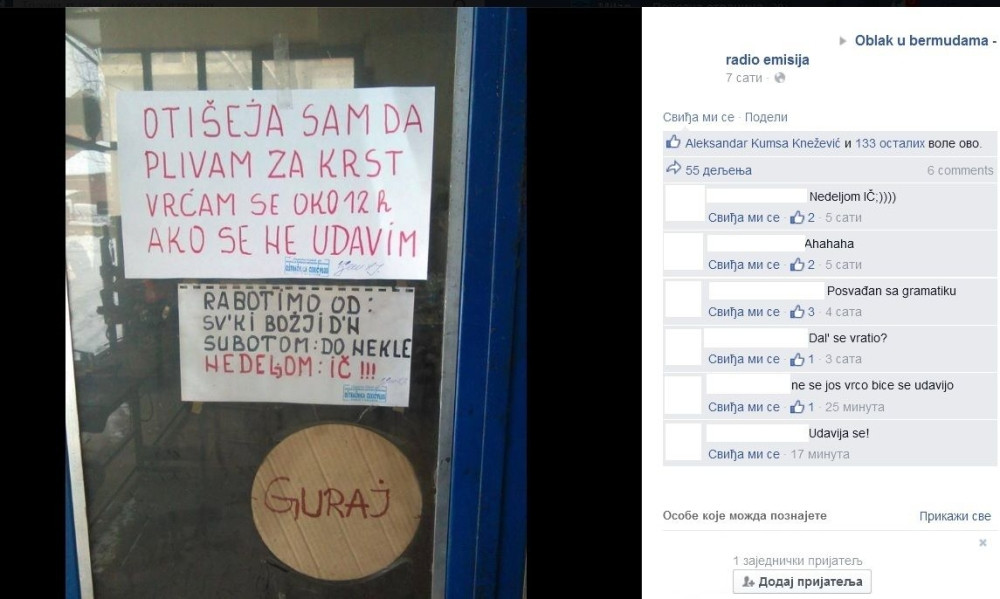 OTIŠEJA SAM DA
PLIVAM ZA KRST
VRĆAM SE OKO 12 h
AKO SE NE UDAVIM
RABOTIMO OD:
SV'KI BOŽJI D'N
SUBOTOM: DO NEKLE
NEDELJOM: IČ !!!
GURAJ
Oblak u bermudama -
radio emisija
7 сати ·
Свиђа ми се · Подели
Aleksandar Kumsa Knežević и 133 осталих воле ово.
55 дељења
6 comments
Nedeljom IČ;))))
Свиђа ми се · 2 · 5 сати
Ahahaha
Свиђа ми се · 2 · 5 сати
Posvađan sa gramatiku
Свиђа ми се · 3 · 4 сата
Dal' se vratio?
Свиђа ми се · 1 · 3 сата
ne se jos vrco bice se udavijo
Свиђа ми се · 1 · 25 минута
Udavija se!
Свиђа ми се · 17 минута
Особе које можда познајете
Прикажи све
1 заједнички пријатељ
Додај пријатеља